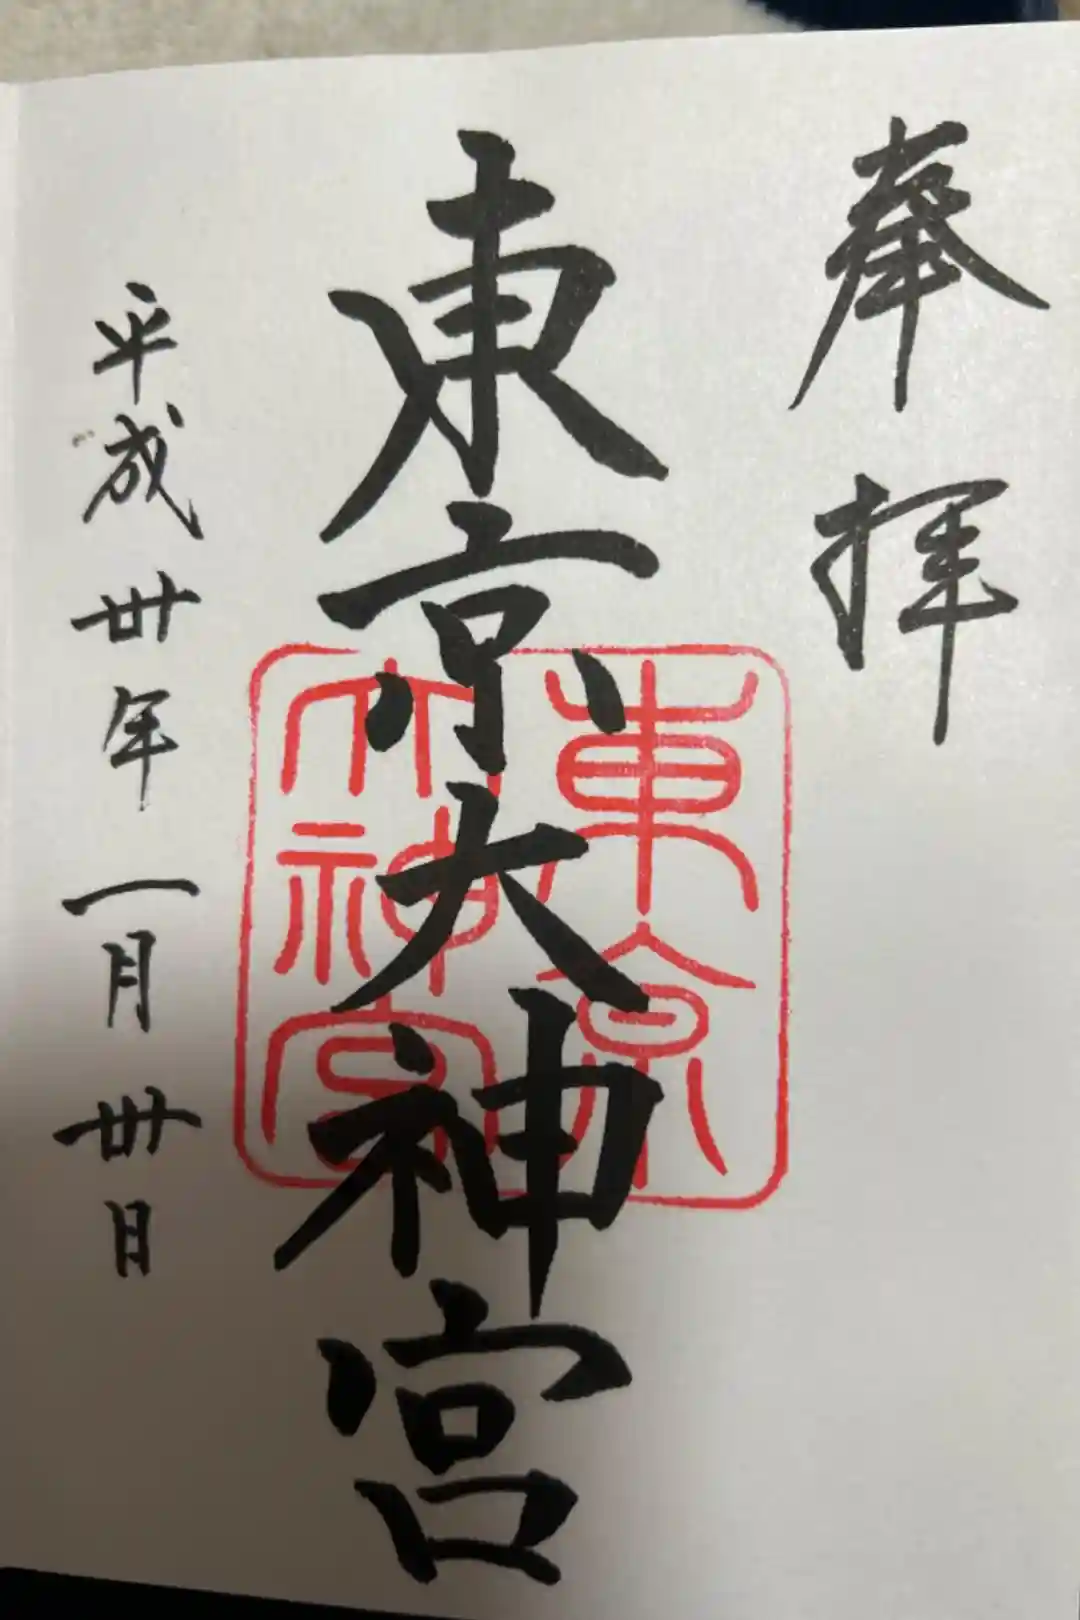 奉拝
東京大神宮
東京
大神宮
平成卅年一月卅日